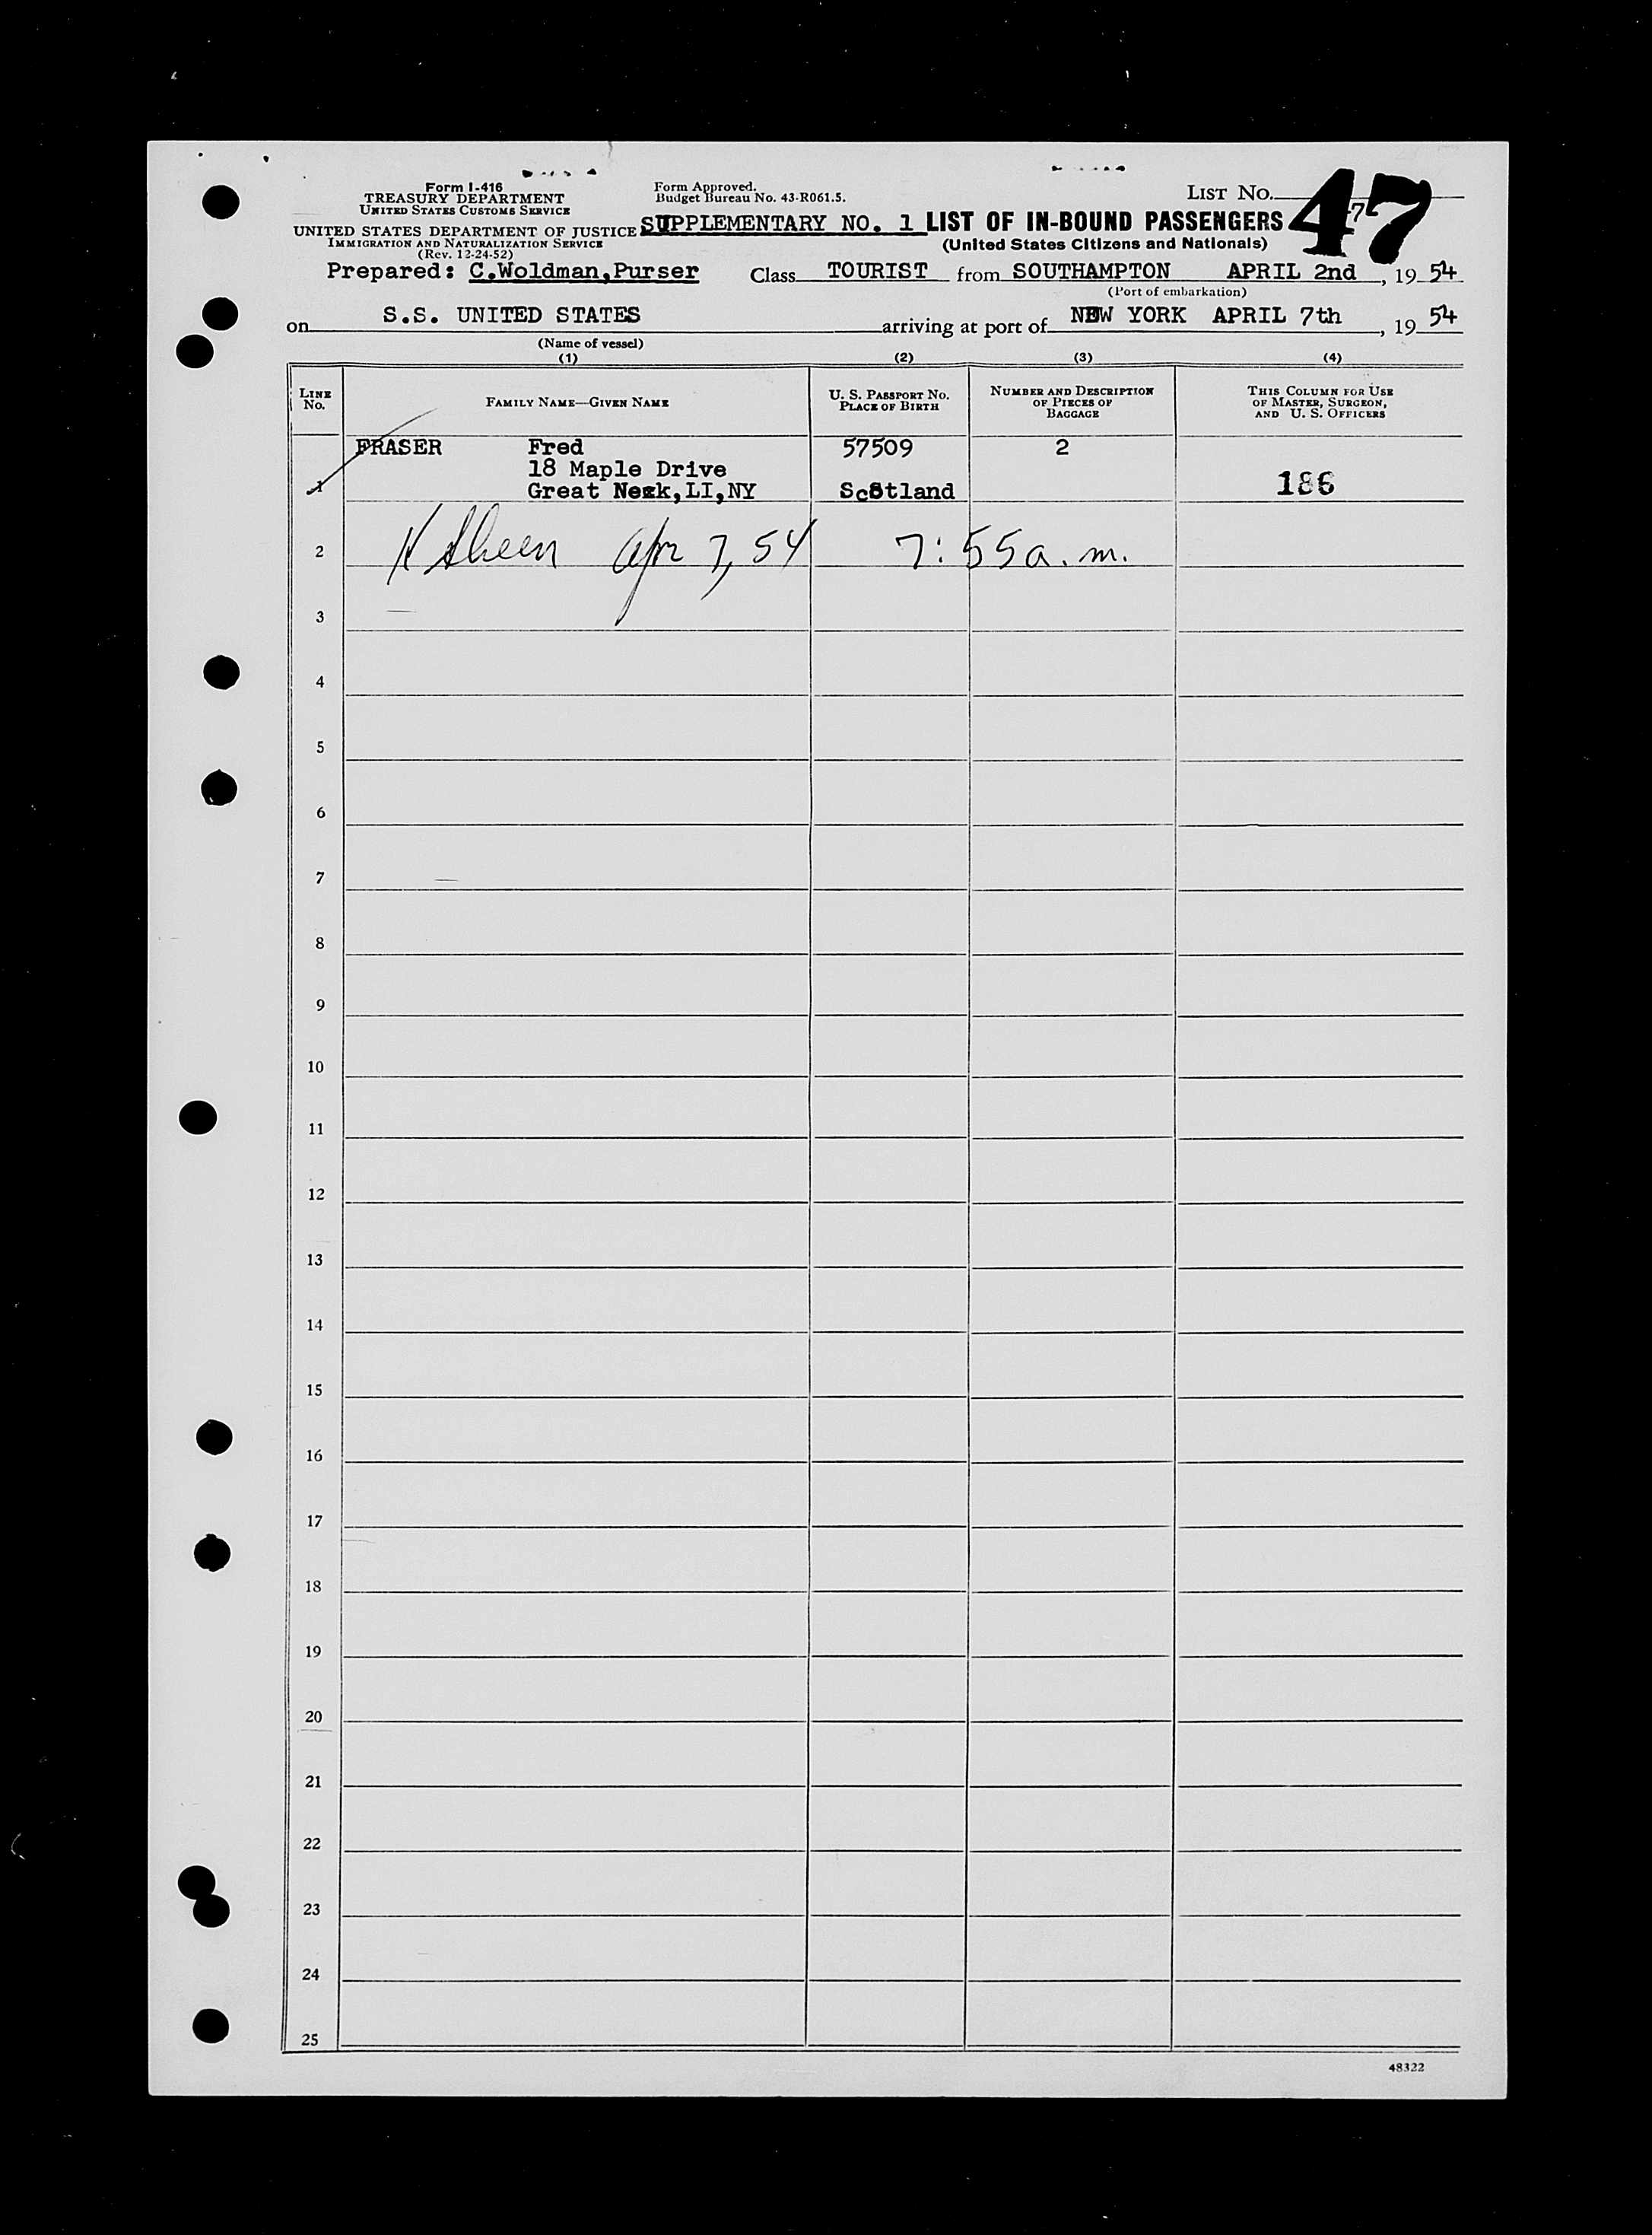 Form I-416
TREASURY DEPARTMENT
UNITED STATES CUSTOMS SERVICE
UNITED STATES DEPARTMENT OF JUSTICE
IMMIGRATION AND NATURALIZATION SERVICE
(Rev. 12-24-52)
Form Approved.
Budget Bureau No. 43-R061.5.
LIST NO. 47
7
SUPPLEMENTARY NO. 1 LIST OF IN-BOUND PASSENGERS
(United States Citizens and Nationals)
Prepared: C.Woldman,Purser Class TOURIST from SOUTHAMPTON APRIL 2nd, 19 54
(Port of embarkation)
on S.S. UNITED STATES arriving at port of NEW YORK APRIL 7th, 19 54
(Name of vessel)
(1) (2) (3) (4)
LINE NO. FAMILY NAME—GIVEN NAME U. S. PASSPORT NO. PLACE OF BIRTH NUMBER AND DESCRIPTION OF PIECES OF BAGGAGE THIS COLUMN FOR USE OF MASTER, SURGEON, AND U. S. OFFICERS
FRASER Fred 57509 2
18 Maple Drive
1 Great Neck,LI,NY Scotland 186
2 Apr 7, 54 7:55a.m.
3
4
5
6
7
8
9
10
11
12
13
14
15
16
17
18
19
20
21
22
23
24
25
48322